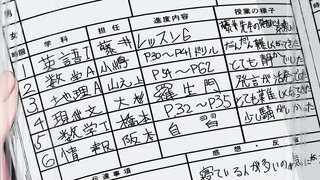 学科 担任 進度内容 授業の様子
1 英語I 藤井 レッスン6
2 数学A 山崎 P30〜P41ドリル だんだん難しくなってきた
3 地理A 山之上 P54〜P62 とても静かでした
4 現代文 大 羅生門 発言が活発でした
5 数学I 橋本 P.32〜P35 とても難しかった
6 情報 阪本 自習 少し騒がしかった
伝達事項 感想・反省
寝ている人が多いのが気に